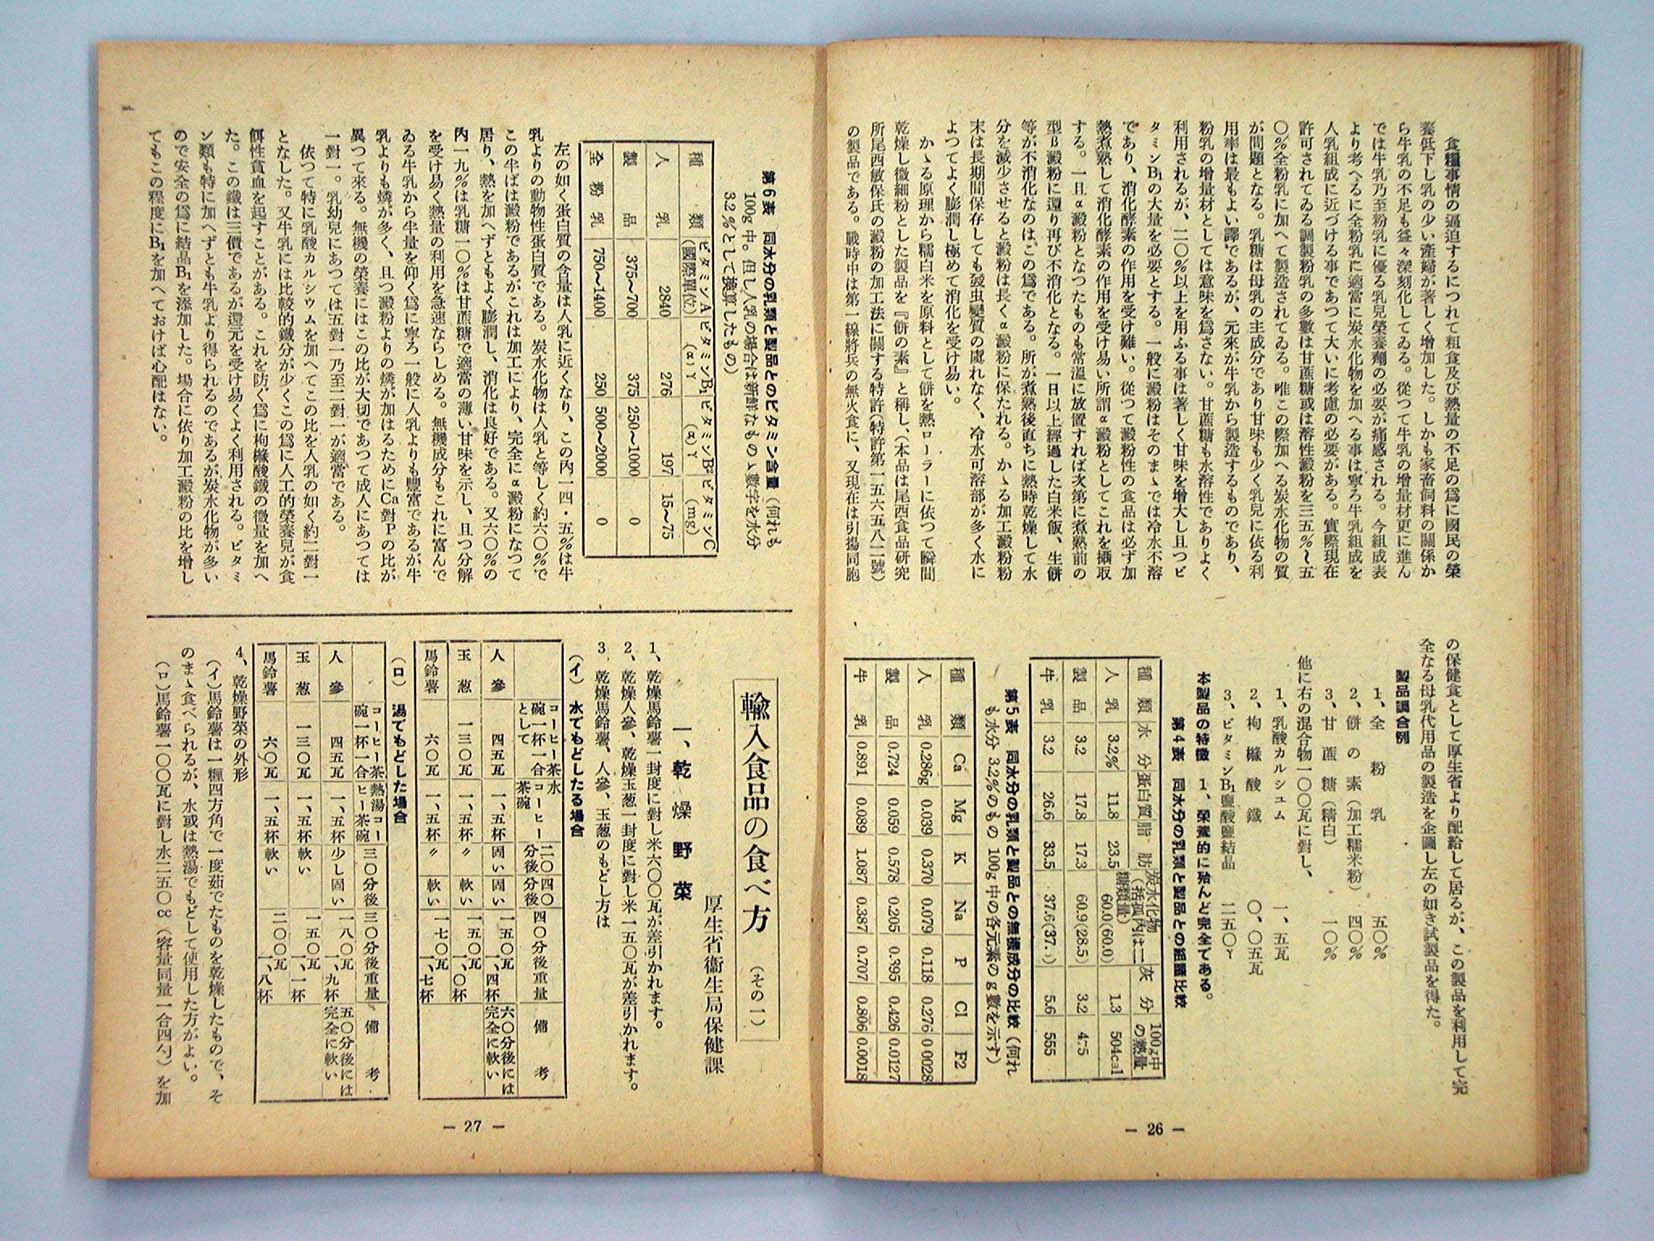 食糧事情の逼迫するにつれて粗食及び熱量の不足の爲に國民の榮
養低下し乳の少い產婦が著しく增加した。しかも家畜飼料の關係か
ら牛乳の不足も益々深刻化してゐる。從つて牛乳の增量材更に進ん
では牛乳乃至粉乳に優る乳兒榮養劑の必要が痛感される。今組成表
より考へるに全粉乳に適當に炭水化物を加へる事は寧ろ牛乳組成を
人乳組成に近づける事であつて大いに考慮の必要がある。實際現在
許可されてゐる調製粉乳の多數は甘蔗糖或は溶性澱粉を三五％〜五
〇％全粉乳に加へて製造されてゐる。唯この際加へる炭水化物の質
が問題となる。乳糖は母乳の主成分であり甘味も少く乳兒に依る利
用率は最もよい譯であるが、元來が牛乳から製造するものであり、
粉乳の增量材としては意味を爲さない。甘蔗糖も水溶性でありよく
利用されるが、二〇％以上を用ふる事は著しく甘味を增大し且つビ
タミンB₁の大量を必要とする。一般に澱粉はそのまゝでは冷水不溶
であり、消化酵素の作用を受け難い。從つて澱粉性の食品は必ず加
熱煮熟して消化酵素の作用を受け易い所謂α澱粉としてこれを攝取
する。一旦α澱粉となつたものも常溫に放置すれば次第に煮熟前の
型β澱粉に還り再び不消化となる。一日以上經過した白米飯、生餅
等が不消化なのはこの爲である。所が煮熟後直ちに熱時乾燥して水
分を減少させると澱粉は長くα澱粉に保たれる。かゝる加工澱粉粉
末は長期間保存しても蟲變質の虞れなく、冷水可溶部が多く水に
よつてよく膨潤し極めて消化を受け易い。
かゝる原理から糯白米を原料として餅を熱ローラーに依つて瞬間
乾燥し微細粉とした製品を『餅の素』と稱し、（本品は尾西食品研究
所尾西敏保氏の澱粉の加工法に關する特許（特許第一五六五八二號）
の製品である。戰時中は第一線將兵の無火食に、又現在は引揚同胞
の保健食として厚生省より配給して居るが、この製品を利用して完
全なる母乳代用品の製造を企圖し左の如き試製品を得た。
製品調合例
1、全粉乳 五〇％
2、餅の素（加工糯米粉） 四〇％
3、甘蔗糖（精白） 一〇％
他に右の混合物一〇〇瓦に對し、
1、乳酸カルシュム 一、五瓦
2、枸櫞酸鐵 〇、〇五瓦
3、ビタミンB₁鹽酸鹽結晶 二五〇γ
本製品の特徵 1、榮養的に殆んど完全である。
第4表 同水分の乳類と製品との組織比較
種類 水分 蛋白質 脂肪 炭水化物（括弧內は二糖類量） 灰分 100g中の熱量
人乳 3.2% 11.8 23.5 60.0(60.0) 1.3 504cal
製品 3.2 17.8 17.3 60.9(28.5) 3.2 475
牛乳 3.2 26.6 33.5 37.6 5.6 555
第5表 同水分の乳類と製品との無機成分の比較（何れ
も水分 3.2%のもの 100g中の各元素のg數を示す）
種類 Ca Mg K Na P Cl F2
人乳 0.286g 0.039 0.370 0.079 0.118 0.276 0.0028
製品 0.724 0.059 0.578 0.205 0.395 0.426 0.0127
牛乳 0.891 0.089 1.087 0.387 0.707 0.806 0.0018
— 26 —
第6表 同水分の乳類と製品とのビタミン含量（何れも
100g中。但し人乳の場合は新鮮なものゝ數字を水分
3.2%として換算したもの）
種類 ビタミンA（國際單位） ビタミンB₁（α）γ ビタミンB²（α）γ ビタミンC（mg）
人乳 2840 276 197 15〜75
製品 375〜700 375 250〜1000 0
全粉乳 750〜1400 250 500〜2000 0
左の如く蛋白質の含量は人乳に近くなり、この內一四・五％は牛
乳よりの動物性蛋白質である。炭水化物は人乳と等しく約六〇％で
この半ばは澱粉であるがこれは加工により、完全にα澱粉になつて
居り、熱を加へずともよく膨潤し、消化は良好である。又六〇％の
內一九％は乳糖一〇％は甘蔗糖で適當の薄い甘味を示し、且つ分解
を受け易く熱量の利用を急速ならしめる。無機成分もこれに富んで
ゐる牛乳から半量を仰ぐ爲に寧ろ一般に人乳よりも豐富であるが牛
乳よりも燐が多く、且つ澱粉よりの燐が加はるためにCa對Pの比が
異つて來る。無機の榮養にはこの比が大切であつて成人にあつては
一對一。乳幼兒にあつては五對一乃至二對一が適當である。
依つて特に乳酸カルシウムを加へてこの比を人乳の如く約二對一
となした。又牛乳には比較的鐵分が少くこの爲に人工的榮養兒が食
餌性貧血を起すことがある。これを防ぐ爲に枸櫞酸鐵の微量を加へ
た。この鐵は三價であるが還元を受け易くよく利用される。ビタミ
ン類も特に加へずとも牛乳より得られるのであるが炭水化物が多い
ので安全の爲に結晶B₁を添加した。場合に依り加工澱粉の比を增し
てもこの程度にB₁を加へておけば心配はない。
輸入食品の食べ方（その一）
厚生省衞生局保健課
一、乾燥野菜
1、乾燥馬鈴薯一封度に對し米六〇〇瓦が差引かれます。
2、乾燥人參、乾燥玉葱一封度に對し米一五〇瓦が差引かれます。
3 乾燥馬鈴薯、人參、玉葱のもどし方は
（イ） 水でもどしたる場合
コーヒー茶碗一杯一合として 水コーヒー茶碗 二〇分後 四〇分後 四〇分後重量 備考
人參 四五瓦 一、五杯 固い 固い 一五〇瓦 一、四杯 六〇分後には完全に軟い
玉葱 一三〇瓦 一、五杯 〃 軟い 一五〇瓦 一、〇杯
馬鈴薯 六〇瓦 一、五杯 〃 軟い 一七〇瓦 一、七杯
（ロ） 湯でもどした場合
コーヒー茶碗一杯一合 熱湯コーヒー茶碗 三〇分後 三〇分後重量 備考
人參 四五瓦 一、五杯 少し固い 一八〇瓦 一、九杯 五〇分後には完全に軟い
玉葱 一三〇瓦 一、五杯 軟い 一五〇瓦 一、一杯
馬鈴薯 六〇瓦 一、五杯 軟い 二〇〇瓦 一、八杯
4、乾燥野菜の外形
（イ）馬鈴薯は一糎四方角で一度茹でたものを乾燥したもので、そ
のまゝ食べられるが、水或は熱湯でもどして使用した方がよい。
（ロ）馬鈴薯一〇〇瓦に對し水二五〇cc（容量同量一合四勺）を加
— 27 —